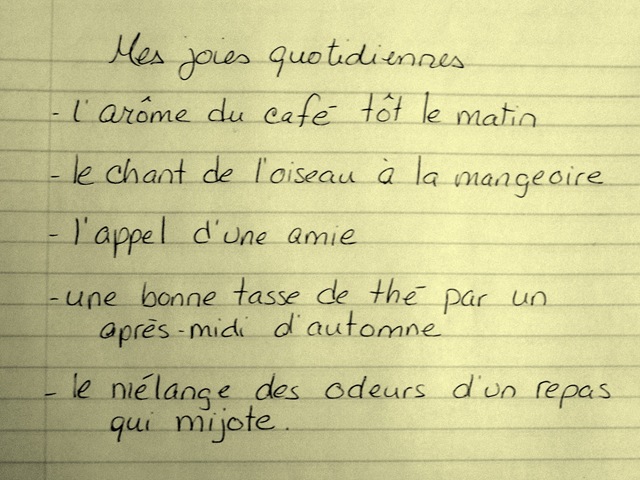 Mes joies quotidiennes
- l'arôme du café tôt le matin
- le chant de l'oiseau à la mangeoire
- l'appel d'une amie
- une bonne tasse de thé par un
après-midi d'automne
- le mélange des odeurs d'un repas
qui mijote.